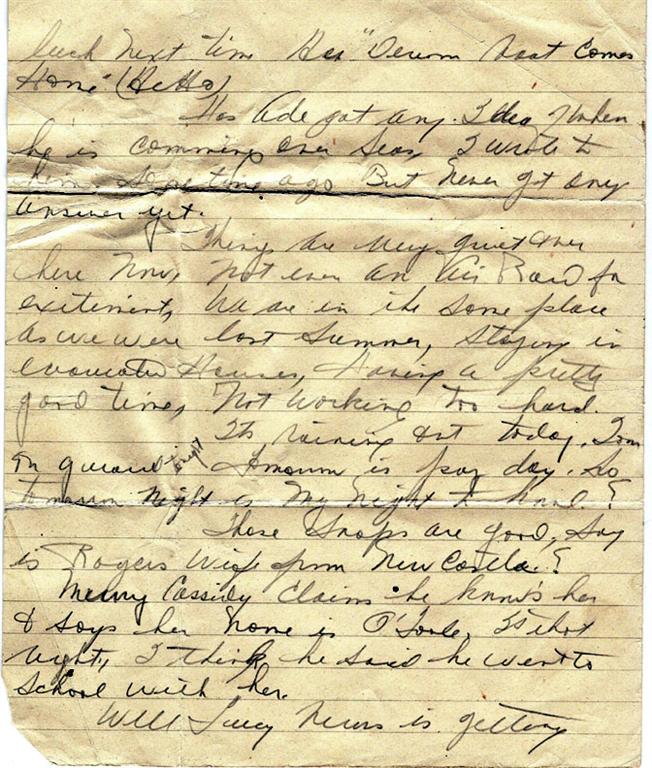 luck next time Her "Dream boat Comes
Home" (HaHa)
Has Ade got any Idea when
he is comming over Seas, I wrote to
him sometime ago But never got any
answer yet.
Things are very quiet over
here Now, Not even an Air Raid for
exitement, We are in the same place
as we were last Summer, staying in
evacuated Houses, Having a pretty
good time, Not working too hard.
Its raining out today, I am
on guard tonight Tomorrow is pay day. So
tomorrow night is My night to howl.?
Those Snaps are good, Say
is Rogers wife from New Castle.?
Cassidy claims he know's her
& says her name is O'Toole, Is that
right, I think he said he went to
School with her.
Well Lucy News is getting